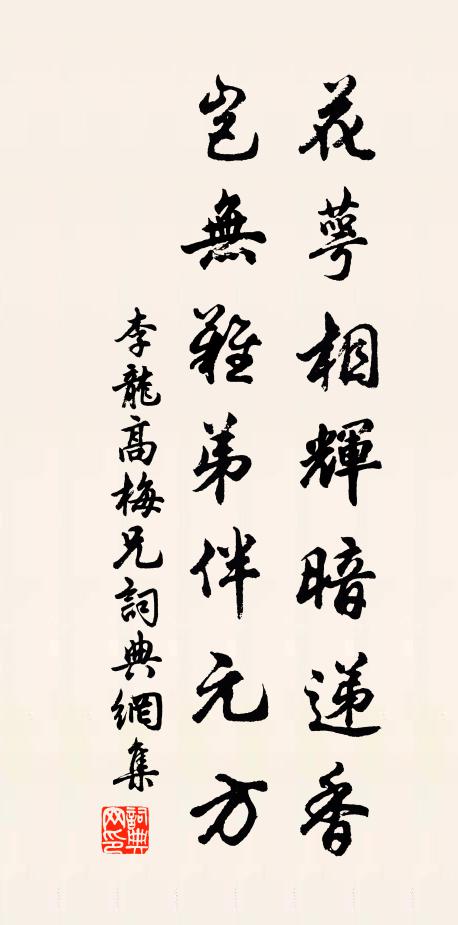 花萼相輝暗遞香
豈無難弟伴元方
李龍高梅兄詞典網集
詞典網印